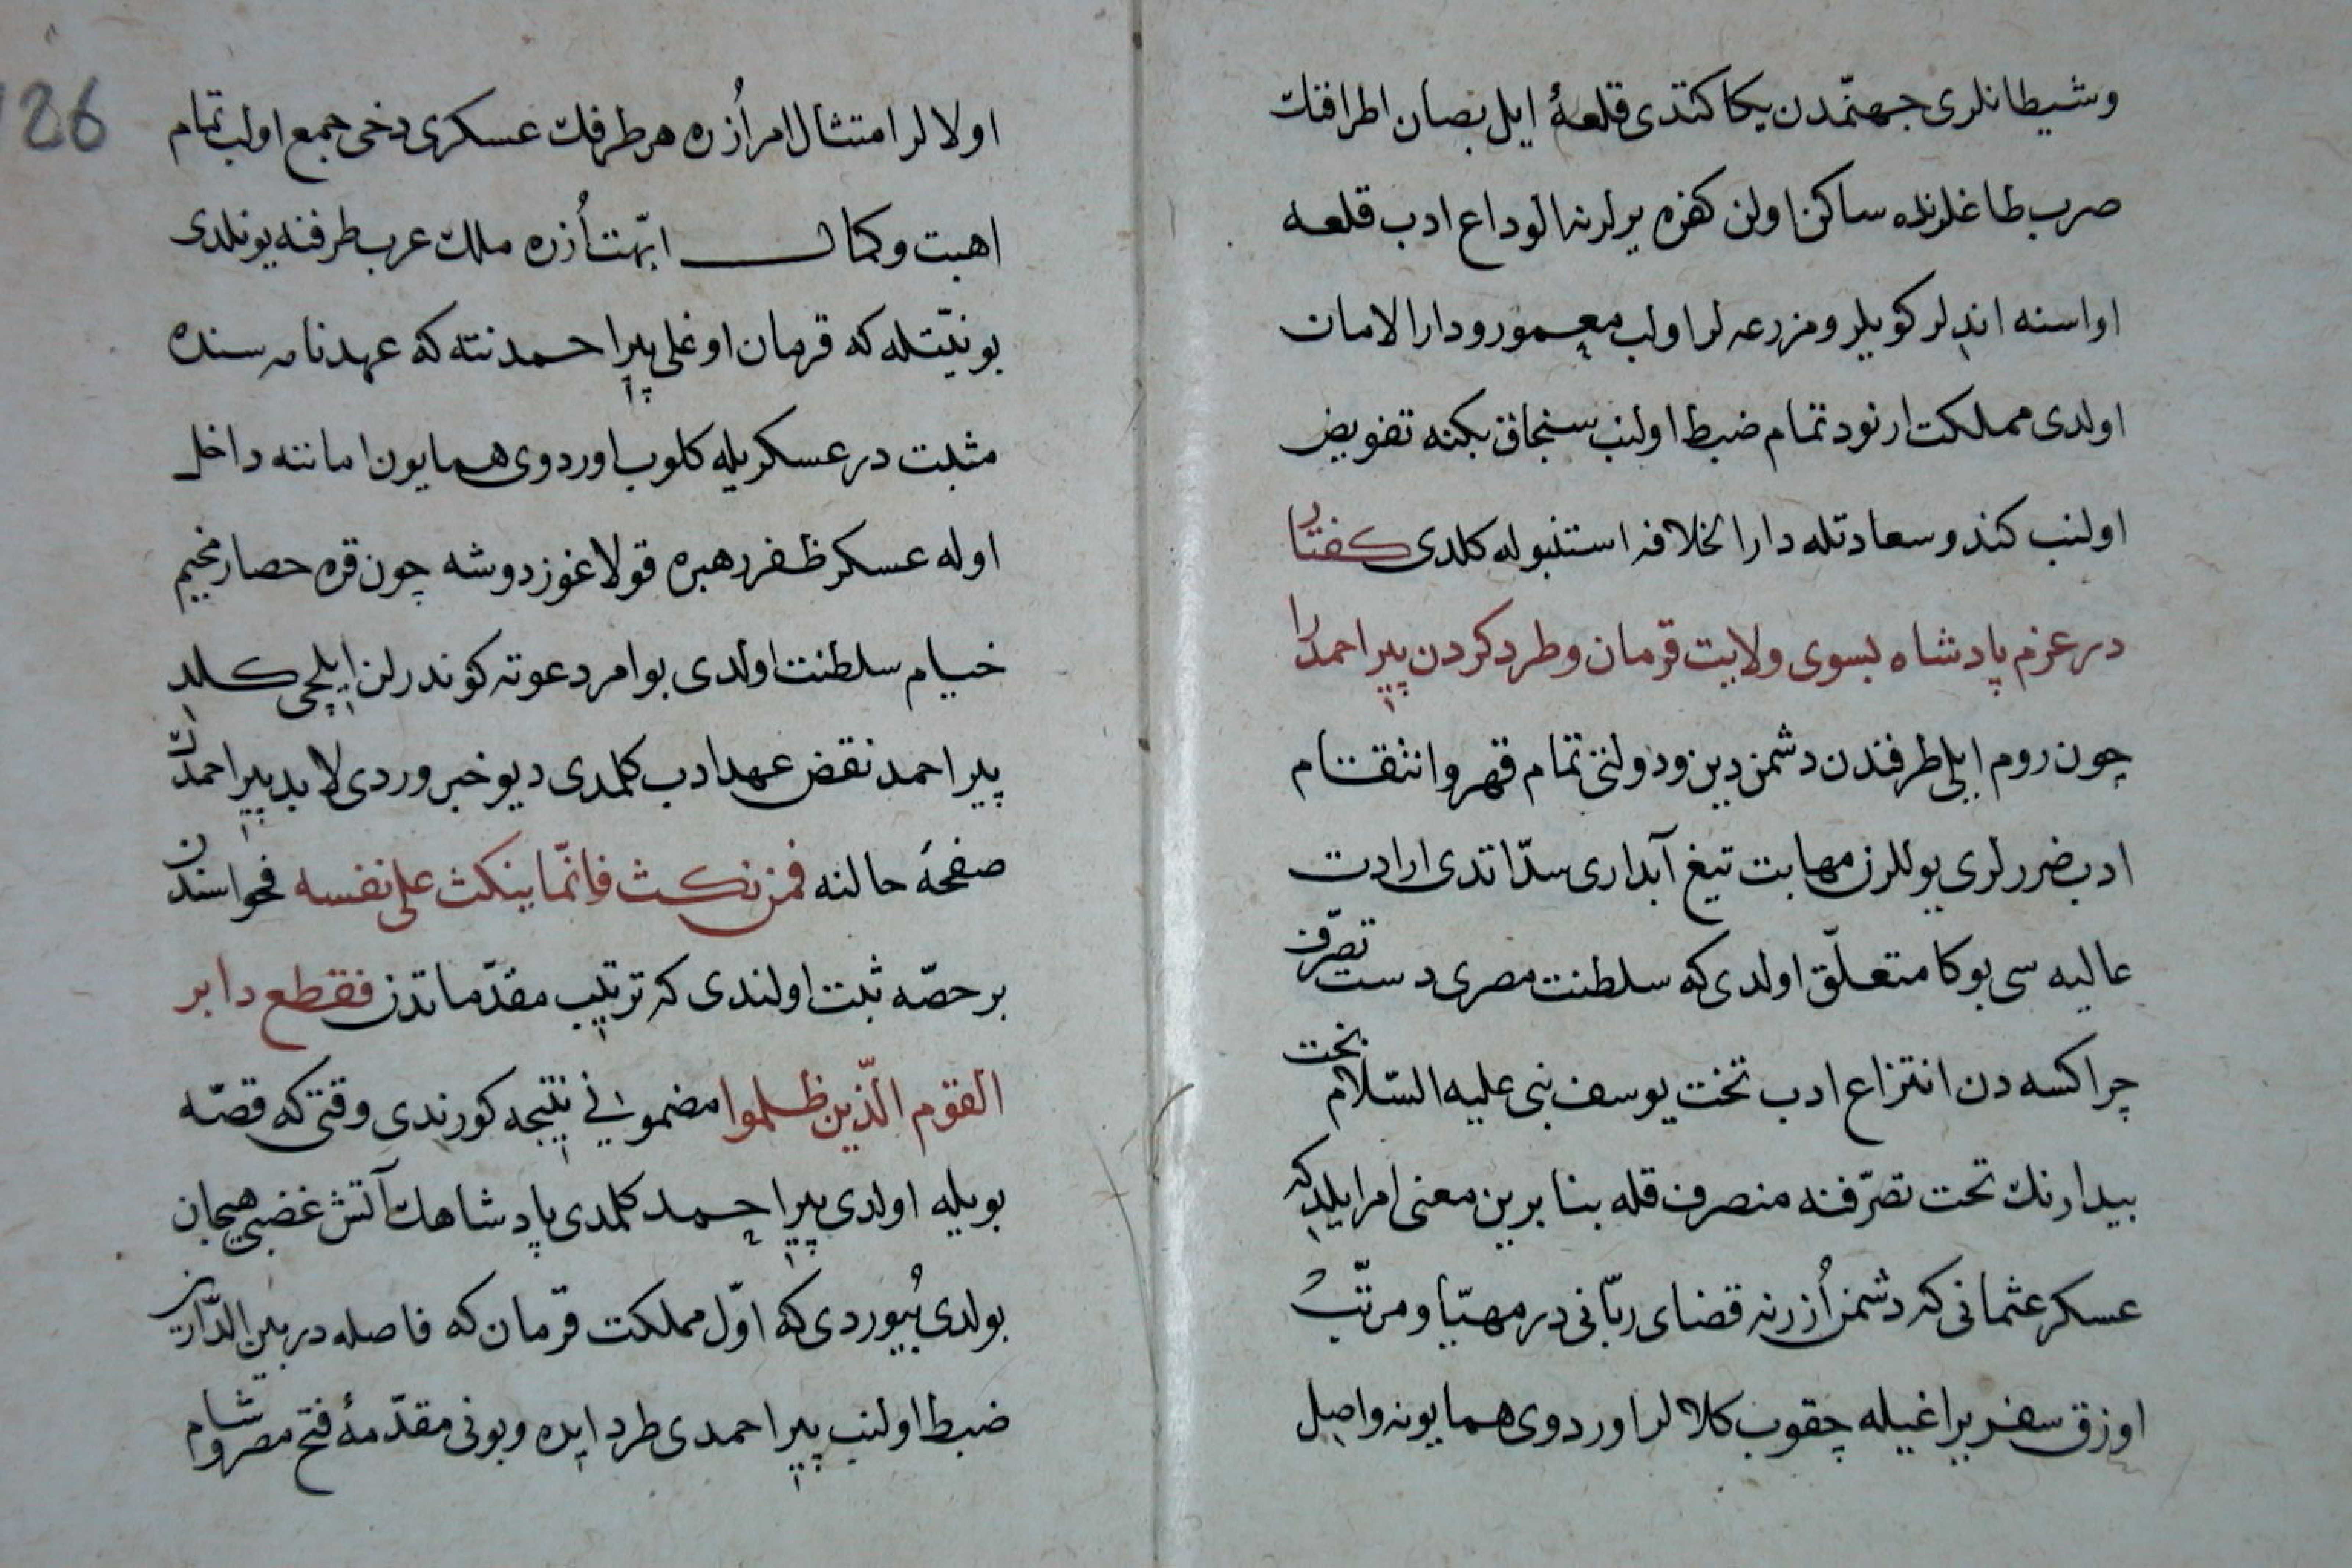 وشيطانلرى جهنّمدن يكا كتدى قلعهٔ ايل بصان اطرافنك
صرب طاغلرنده ساكن اولن كفره يرلرنه الوداع ادب قلعه
اواسنه اندلر كويلر ومزرعه لر اولب معمور ودار الامان
اولدى مملكت ارنود تمام ضبط اولنب سنجاق بكنه تفويض
اولنب كندو سعادتله دار الخلافه استنبوله كلدى كفتار
در عزم پادشاه بسوى ولايت قرمان وطرد كردن پير احمد را
چون روم ايلى طرفندن دشمن دين ودولتى تمام قهر وانتقام
ادب ضررلرى يوللرن مهابت تيغ آبدارى سدّ اتدى ارادت
عاليه سى بوكا متعلّق اولدى كه سلطنت مصرى دست تصرّف
چراكسه دن انتزاع ادب تخت يوسف نبى عليه السّلام بخت
بيدارنك تحت تصرّفنه منصرف قله بنا برين معنى امر ايلدى كه
عسكر عثمانى كه دشمن اُزرنه قضاى ربّانى در مهيّا ومرتّب
اوزق سفر يراغيله چقوب كلالر اوردوى همايونه واصل
اولالر امتثال امر اُزره هر طرفك عسكرى دخى جمع اولب تمام
اهبت وكمال ابّهت اُزره ملك عرب طرفنه يونلدى
بو نيّتله كه قرمان اوغلى پير احمد نته كه عهدنامه سنده
مثبت در عسكريله كلوب اوردوى همايون امانته داخل
اوله عسكر ظفر رهبره قولاغوز دوشه چون قره حصار مخيم
خيام سلطنت اولدى بو امر دعوته كوندرلن ايلچى كلدى
پير احمد نقض عهد ادب كلمدى ديو خبر وردى لابد پير احمدك
صفحهٔ حالنه فمن نكث فانّما ينكث على نفسه فحواسندن
بر حصّه ثبت اولندى كه ترتيب مقدّماتدن فقطع دابر
القوم الّذين ظلموا مضمونى نتيجه كورندى وقتى كه قصّه
بويله اولدى پير احمد كلمدى پادشاهك آتش غضبى هيجان
بولدى بُيوردى كه اوّل مملكت قرمان كه فاصله در بين الدّارين
ضبط اولنب پير احمدى طرد ايده وبونى مقدّمهٔ فتح مصر وشام
126